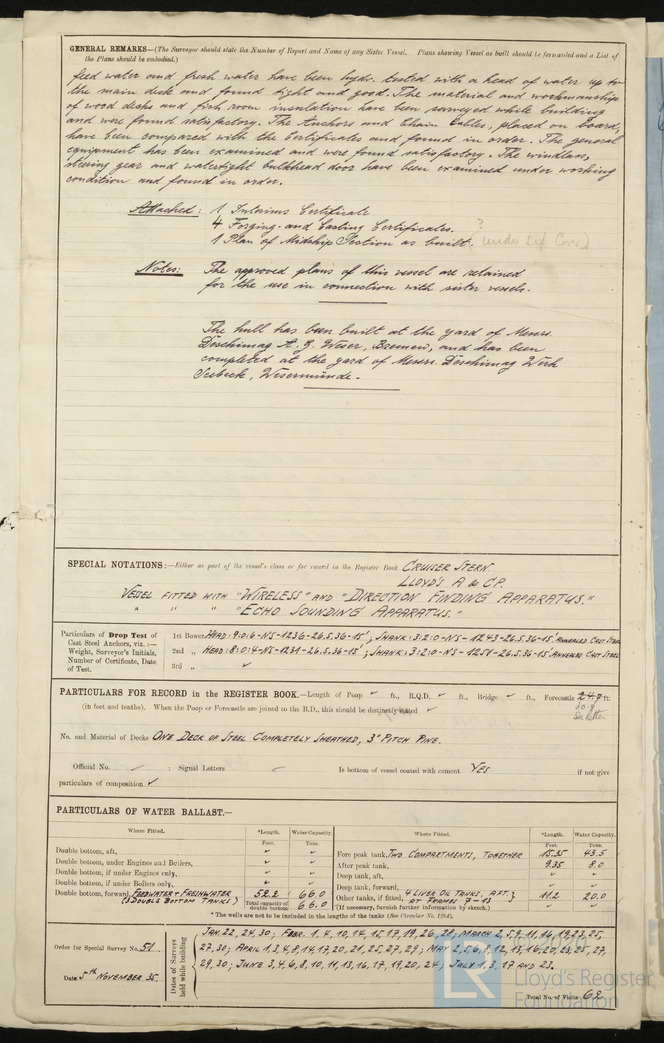 GENERAL REMARKS—(The Surveyor should state the Number of Report and Name of any Sister Vessel. Plans showing Vessel as built should be forwarded and a List of
the Plans should be embodied.)
feed water and fresh water have been hydr. tested with a head of water up to
the main deck and found tight and good. The material and workmanship
of wood decks and fish room insulation have been surveyed while building
and were found satisfactory. The Anchors and Chain Cables, placed on board,
have been compared with the Certificates and found in order. The general
equipment has been examined and were found satisfactory. The windlass,
steering gear and watertight bulkhead door have been examined under working
condition and found in order.
Attached: 1 Interims Certificate
4 Forging- and Casting Certificates.
1 Plan of Midship Section as built. ?
Notes: The approved plans of this vessel are retained
for the use in connection with sister vessels.
The hull has been built at the yard of Messrs.
Deschimag A. G. Weser, Bremen, and has been
completed at the yard of Messrs. Deschimag Werk
Seebeck, Wesermünde.
SPECIAL NOTATIONS:—Either as part of the vessel's class or for record in the Register Book CRUISER STERN
LLOYD'S A & CP.
VESSEL FITTED WITH "WIRELESS" AND "DIRECTION FINDING APPARATUS."
" " " "ECHO SOUNDING APPARATUS."
Particulars of Drop Test of
Cast Steel Anchors, viz.:—
Weight, Surveyor's Initials,
Number of Certificate, Date
of Test.
1st Bower HEAD: 9:0:6-NS-1236-26.5.36-15'; SHANK: 3:2:0-NS-1243-26.5.36-15' ANNEALED CAST STEEL
2nd " HEAD: 8:0:4-NS-1231-26.5.36-15'; SHANK: 3:2:0-NS-1251-26.5.36-15' ANNEALED CAST STEEL
3rd "
PARTICULARS FOR RECORD in the REGISTER BOOK.—Length of Poop ft., R.Q.D. ft., Bridge ft., Forecastle 24.7 ft.
(in feet and tenths). When the Poop or Forecastle are joined to the B.D., this should be distinctly stated
See letter
No. and Material of Decks ONE DECK OF STEEL COMPLETELY SHEATHED, 3" PITCH PINE.
Official No. ; Signal Letters Is bottom of vessel coated with cement YES if not give
particulars of composition
PARTICULARS OF WATER BALLAST.—
Where Fitted. *Length. Water Capacity. Where Fitted. *Length. Water Capacity.
Feet. Tons. Feet. Tons.
Double bottom, aft, Fore peak tank, TWO COMPARTMENTS, TOGETHER 15.35 43.5
Double bottom, under Engines and Boilers, After peak tank, 9.35 8.0
Double bottom, if under Engines only, Deep tank, aft,
Double bottom, if under Boilers only, Deep tank, forward,
Double bottom, forward, FEEDWATER + FRESHWATER 52.2 66.0 Other tanks, if fitted, 4 LIVER OIL TANKS, AFT. 11.2 20.0
(3 DOUBLE BOTTOM TANKS) Total capacity of double bottom 66.0 AT FRAMES 7-13 (If necessary, furnish further information by sketch.)
* The wells are not to be included in the lengths of the tanks (See Circular No. 1284).
Order for Special Survey No. 51
Date 5th NOVEMBER 35.
Dates of Surveys
held while building
JAN. 22, 24, 30; FEBR. 1, 4, 10, 14, 15, 17, 19, 26, 28; MARCH 2, 5, 9, 11, 16, 19, 23, 25,
27, 30; APRIL 1, 3, 4, 8, 14, 17, 20, 21, 25, 27, 29; MAY 2, 5, 6, 9, 12, 15, 16, 20, 23, 25, 27,
29, 30; JUNE 3, 4, 6, 8, 10, 11, 15, 16, 17, 19, 20, 24; JULY 1, 3, 17 AND 23.
Total No. of Visits 62
LR
Lloyd's Register
Foundation